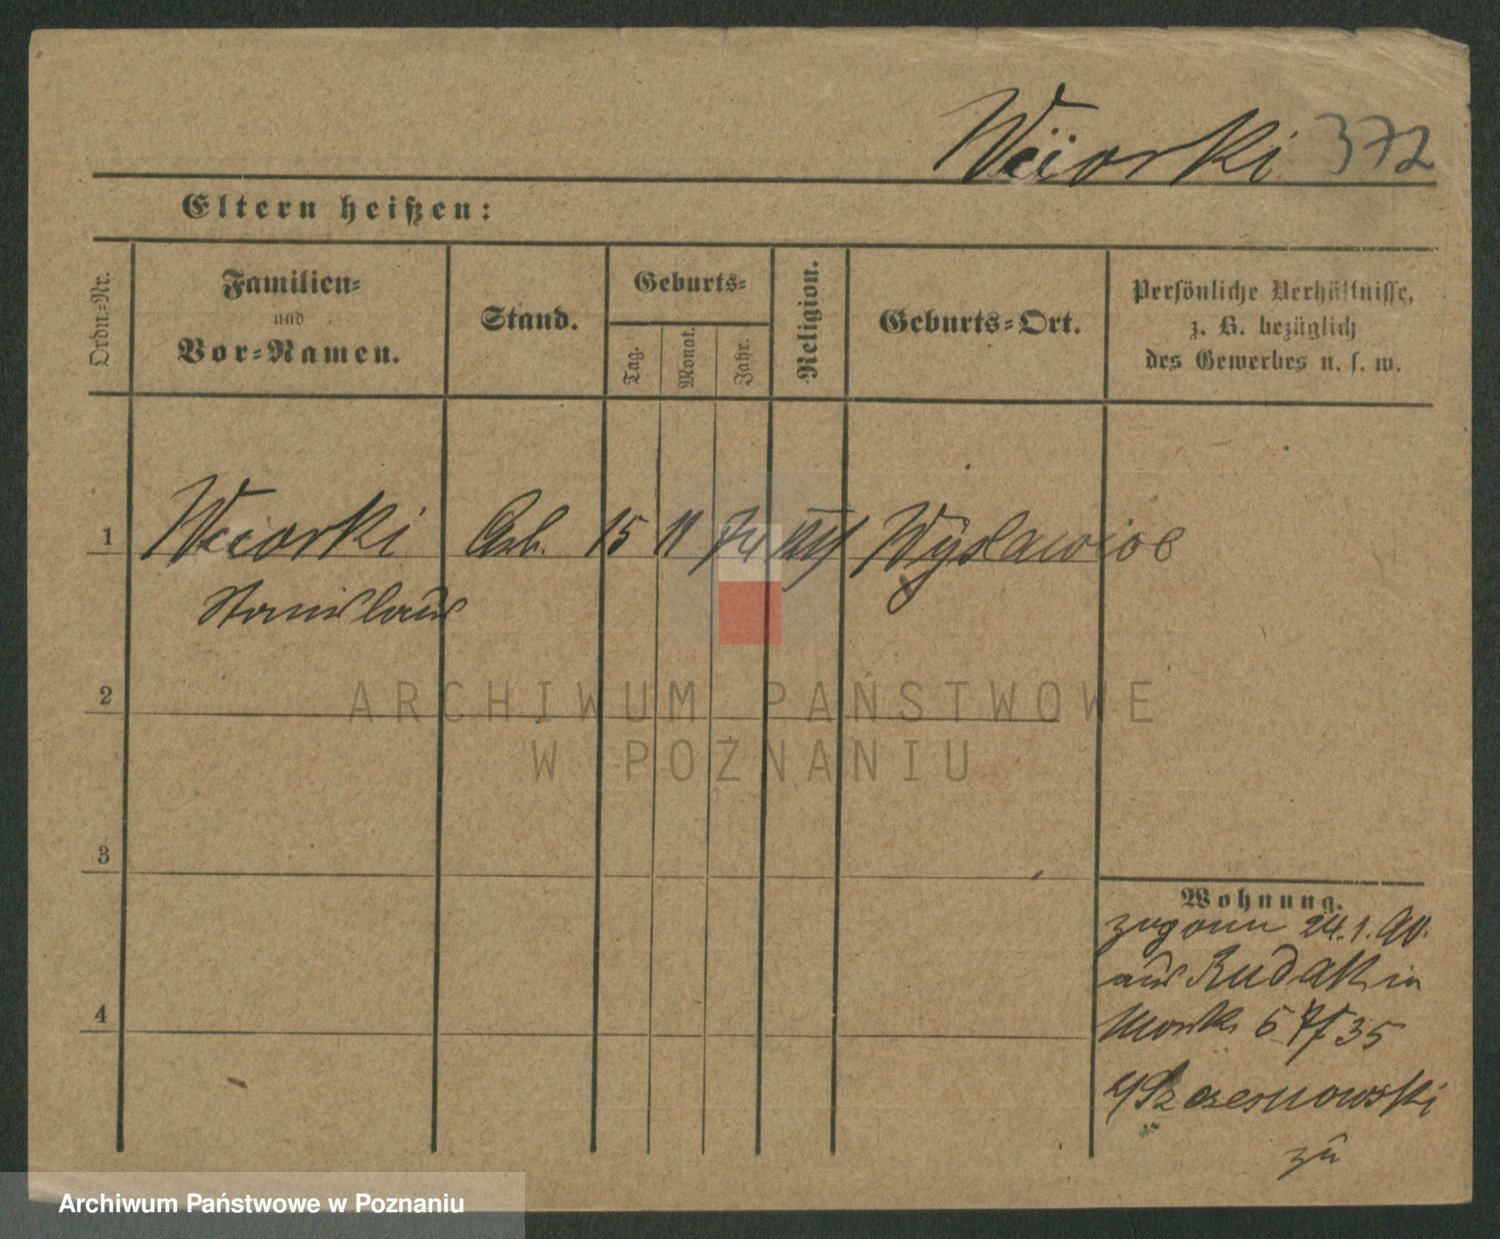 Wciorki 372
Eltern heißen:
Ordn.-Nr.
Familien-
und
Vor-Namen.
Stand.
Geburts-
Tag.
Monat.
Jahr.
Religion.
Geburts-Ort.
Persönliche Verhältnisse,
z. B. bezüglich
des Gewerbes u. s. w.
1 Wciorki Arb. 15 11 74
Stanislaus
2
3
4
Wohnung.
24. 1. 00.
aus Rudak in
5 35
Szczesnowski
zu
ARCHIWUM PAŃSTWOWE
W POZNANIU
Archiwum Państwowe w Poznaniu